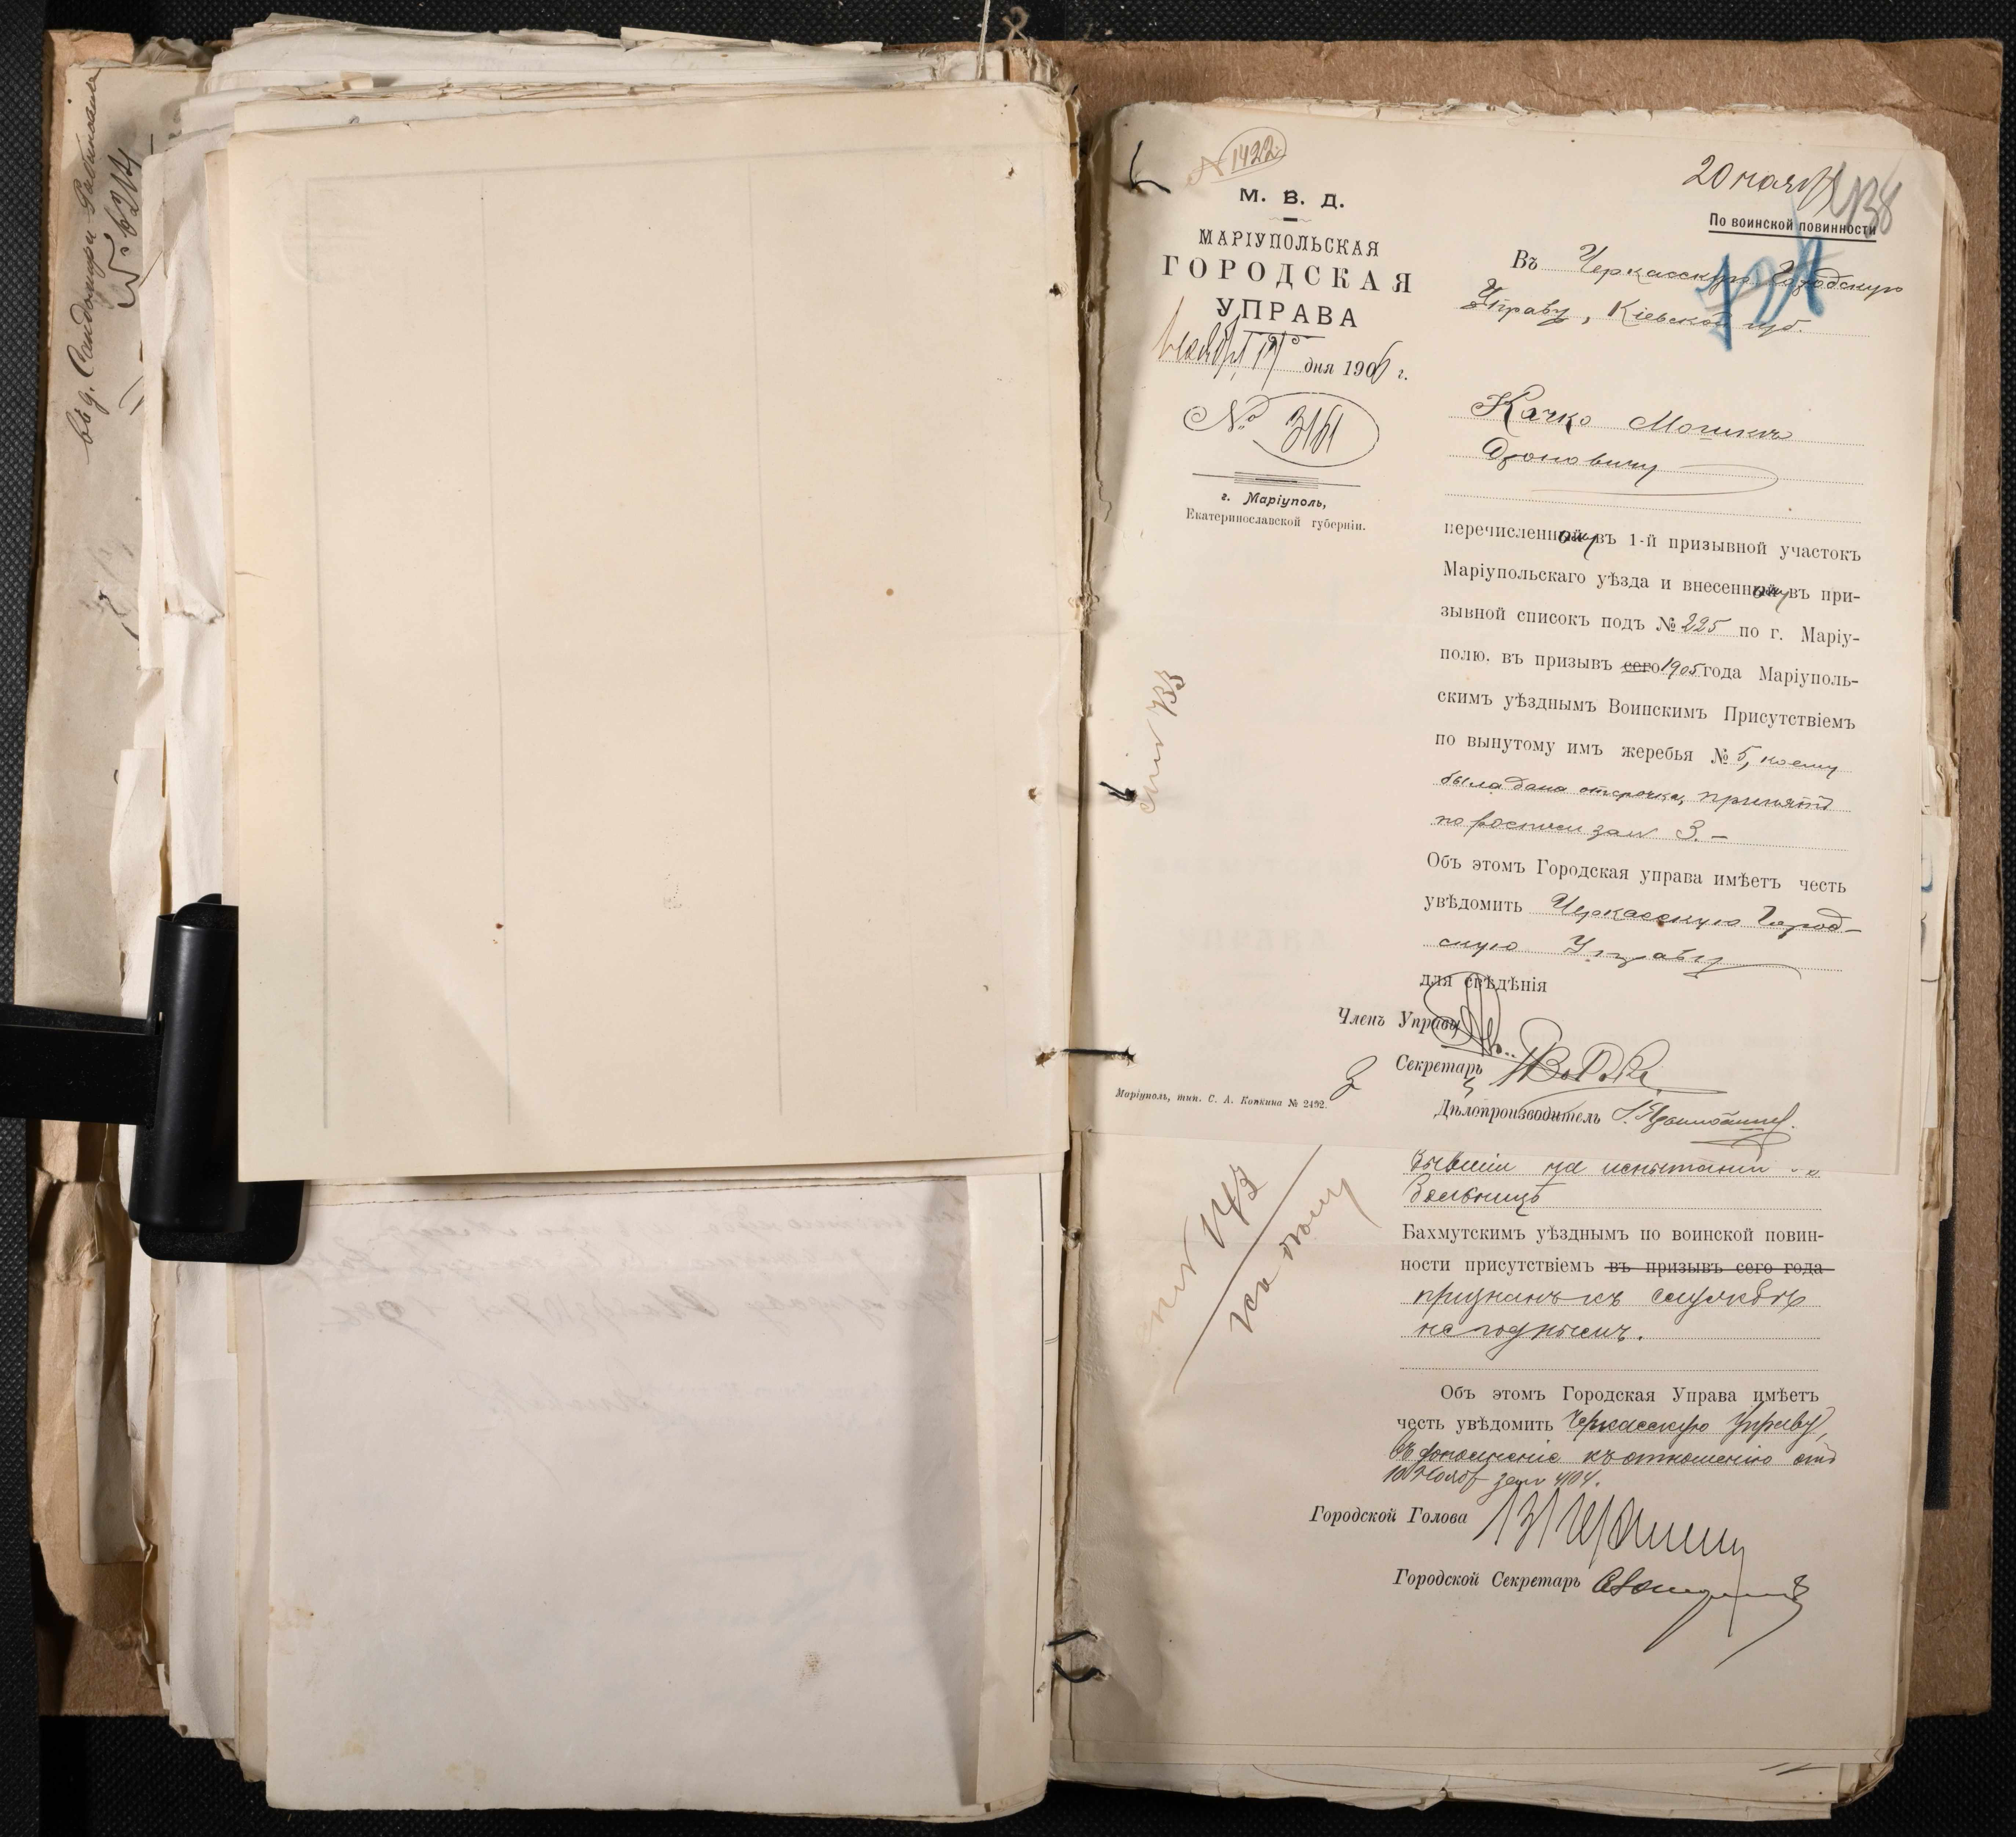 въ д. Сандомири Рабинович
№ 6214
№ 1422
М. В. Д.
МАРІУПОЛЬСКАЯ
ГОРОДСКАЯ
УПРАВА
Ноября 17 дня 1906 г.
№ 3161
г. Маріуполь,
Екатеринославской губерніи.
20 ноября
138
По воинской повинности
Въ Черкасскую Городскую
Управу, Кіевской губ.
Качко Мошки
Ароновичу
перечисленному въ 1-й призывной участокъ
Маріупольскаго уѣзда и внесенному въ при-
зывной списокъ подъ № 225 по г. Маріу-
полю. въ призывъ сего 1905 года Маріуполь-
скимъ уѣзднымъ Воинскимъ Присутствіемъ
по вынутому имъ жеребья № 5, коему
была дана отсрочка, принятъ
по росписи за № 3.—
Объ этомъ Городская управа имѣетъ честь
увѣдомить Черкасскую Город-
скую Управу
для свѣдѣнія
Членъ Управы
Секретарь
Дѣлопроизводитель
Маріуполь, тип. С. А. Копкина № 2492.
бывшій на испытаніи въ
Больницѣ
Бахмутскимъ уѣзднымъ по воинской повин-
ности присутствіемъ въ призывъ сего года
признанъ къ службѣ
не годнымъ.
Объ этомъ Городская Управа имѣетъ
честь увѣдомить Черкасскую Управу,
въ дополненіе къ отношенію отъ
10 Нояб за № 4104.
Городской Голова
Городской Секретарь